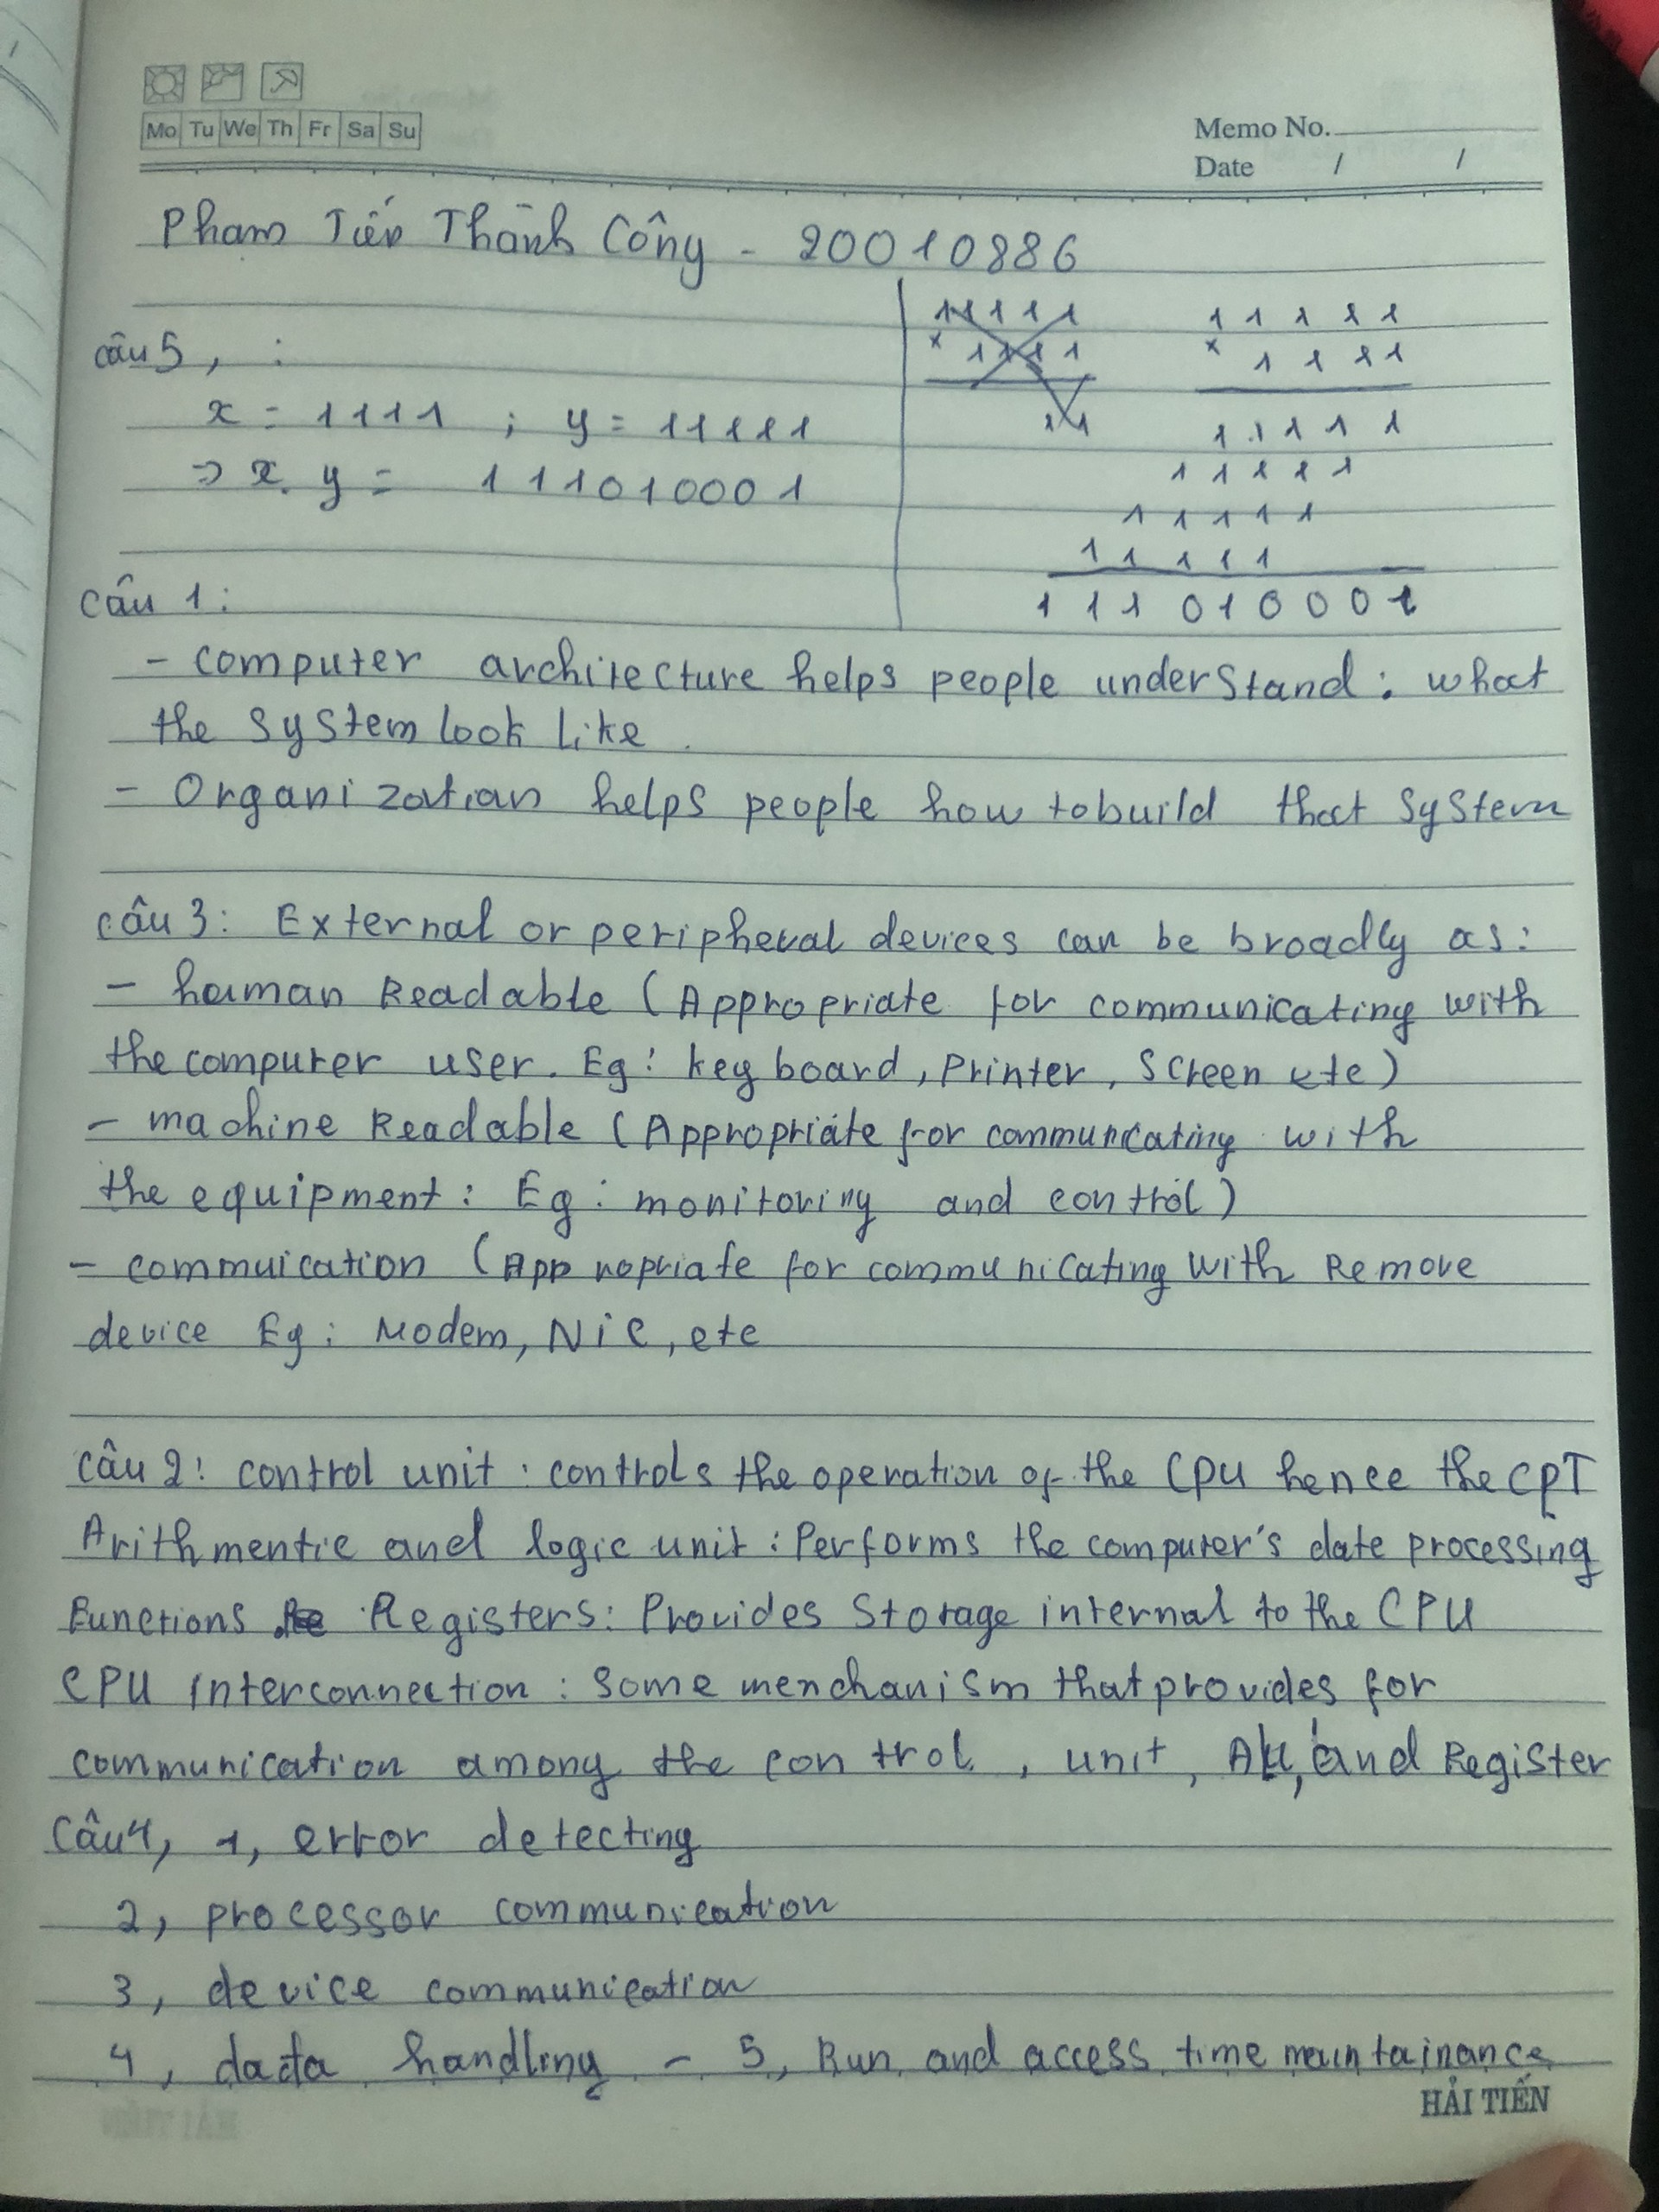 Mo Tu We Th Fr Sa Su
Memo No.
Date / /
Phạm Tiến Thành Công - 20010886
câu 5, :
x = 1111 ; y = 11111
=> x. y = 111010001
11111
x 1111
11
11111
x 1111
11111
11111
11111
11111
111010001
câu 1:
- computer architecture helps people understand: what
the system look like.
- Organization helps people how to build that system
câu 3: External or peripheral devices can be broadly as:
- human Readable (Appropriate for communicating with
the computer user. Eg: keyboard, Printer, Screen ete)
- machine Readable (Appropriate for communicating with
the equipment: Eg: monitoring and control)
- commuication (Appropriate for communicating with Remove
device Eg: Modem, NiC, etc
câu 2: control unit: controls the operation of the CPU hence the CPT
Arithmentic and logic unit: Performs the computer's date processing
Functions. Registers: Provides Storage internal to the CPU
CPU interconnection: Some menchanism that provides for
communication among the control, unit, ALU, and Register
Câu 4, 1, error detecting
2, processor communication
3, device communication
4, dada handling - 5, Run and access time maintainance
HẢI TIẾN